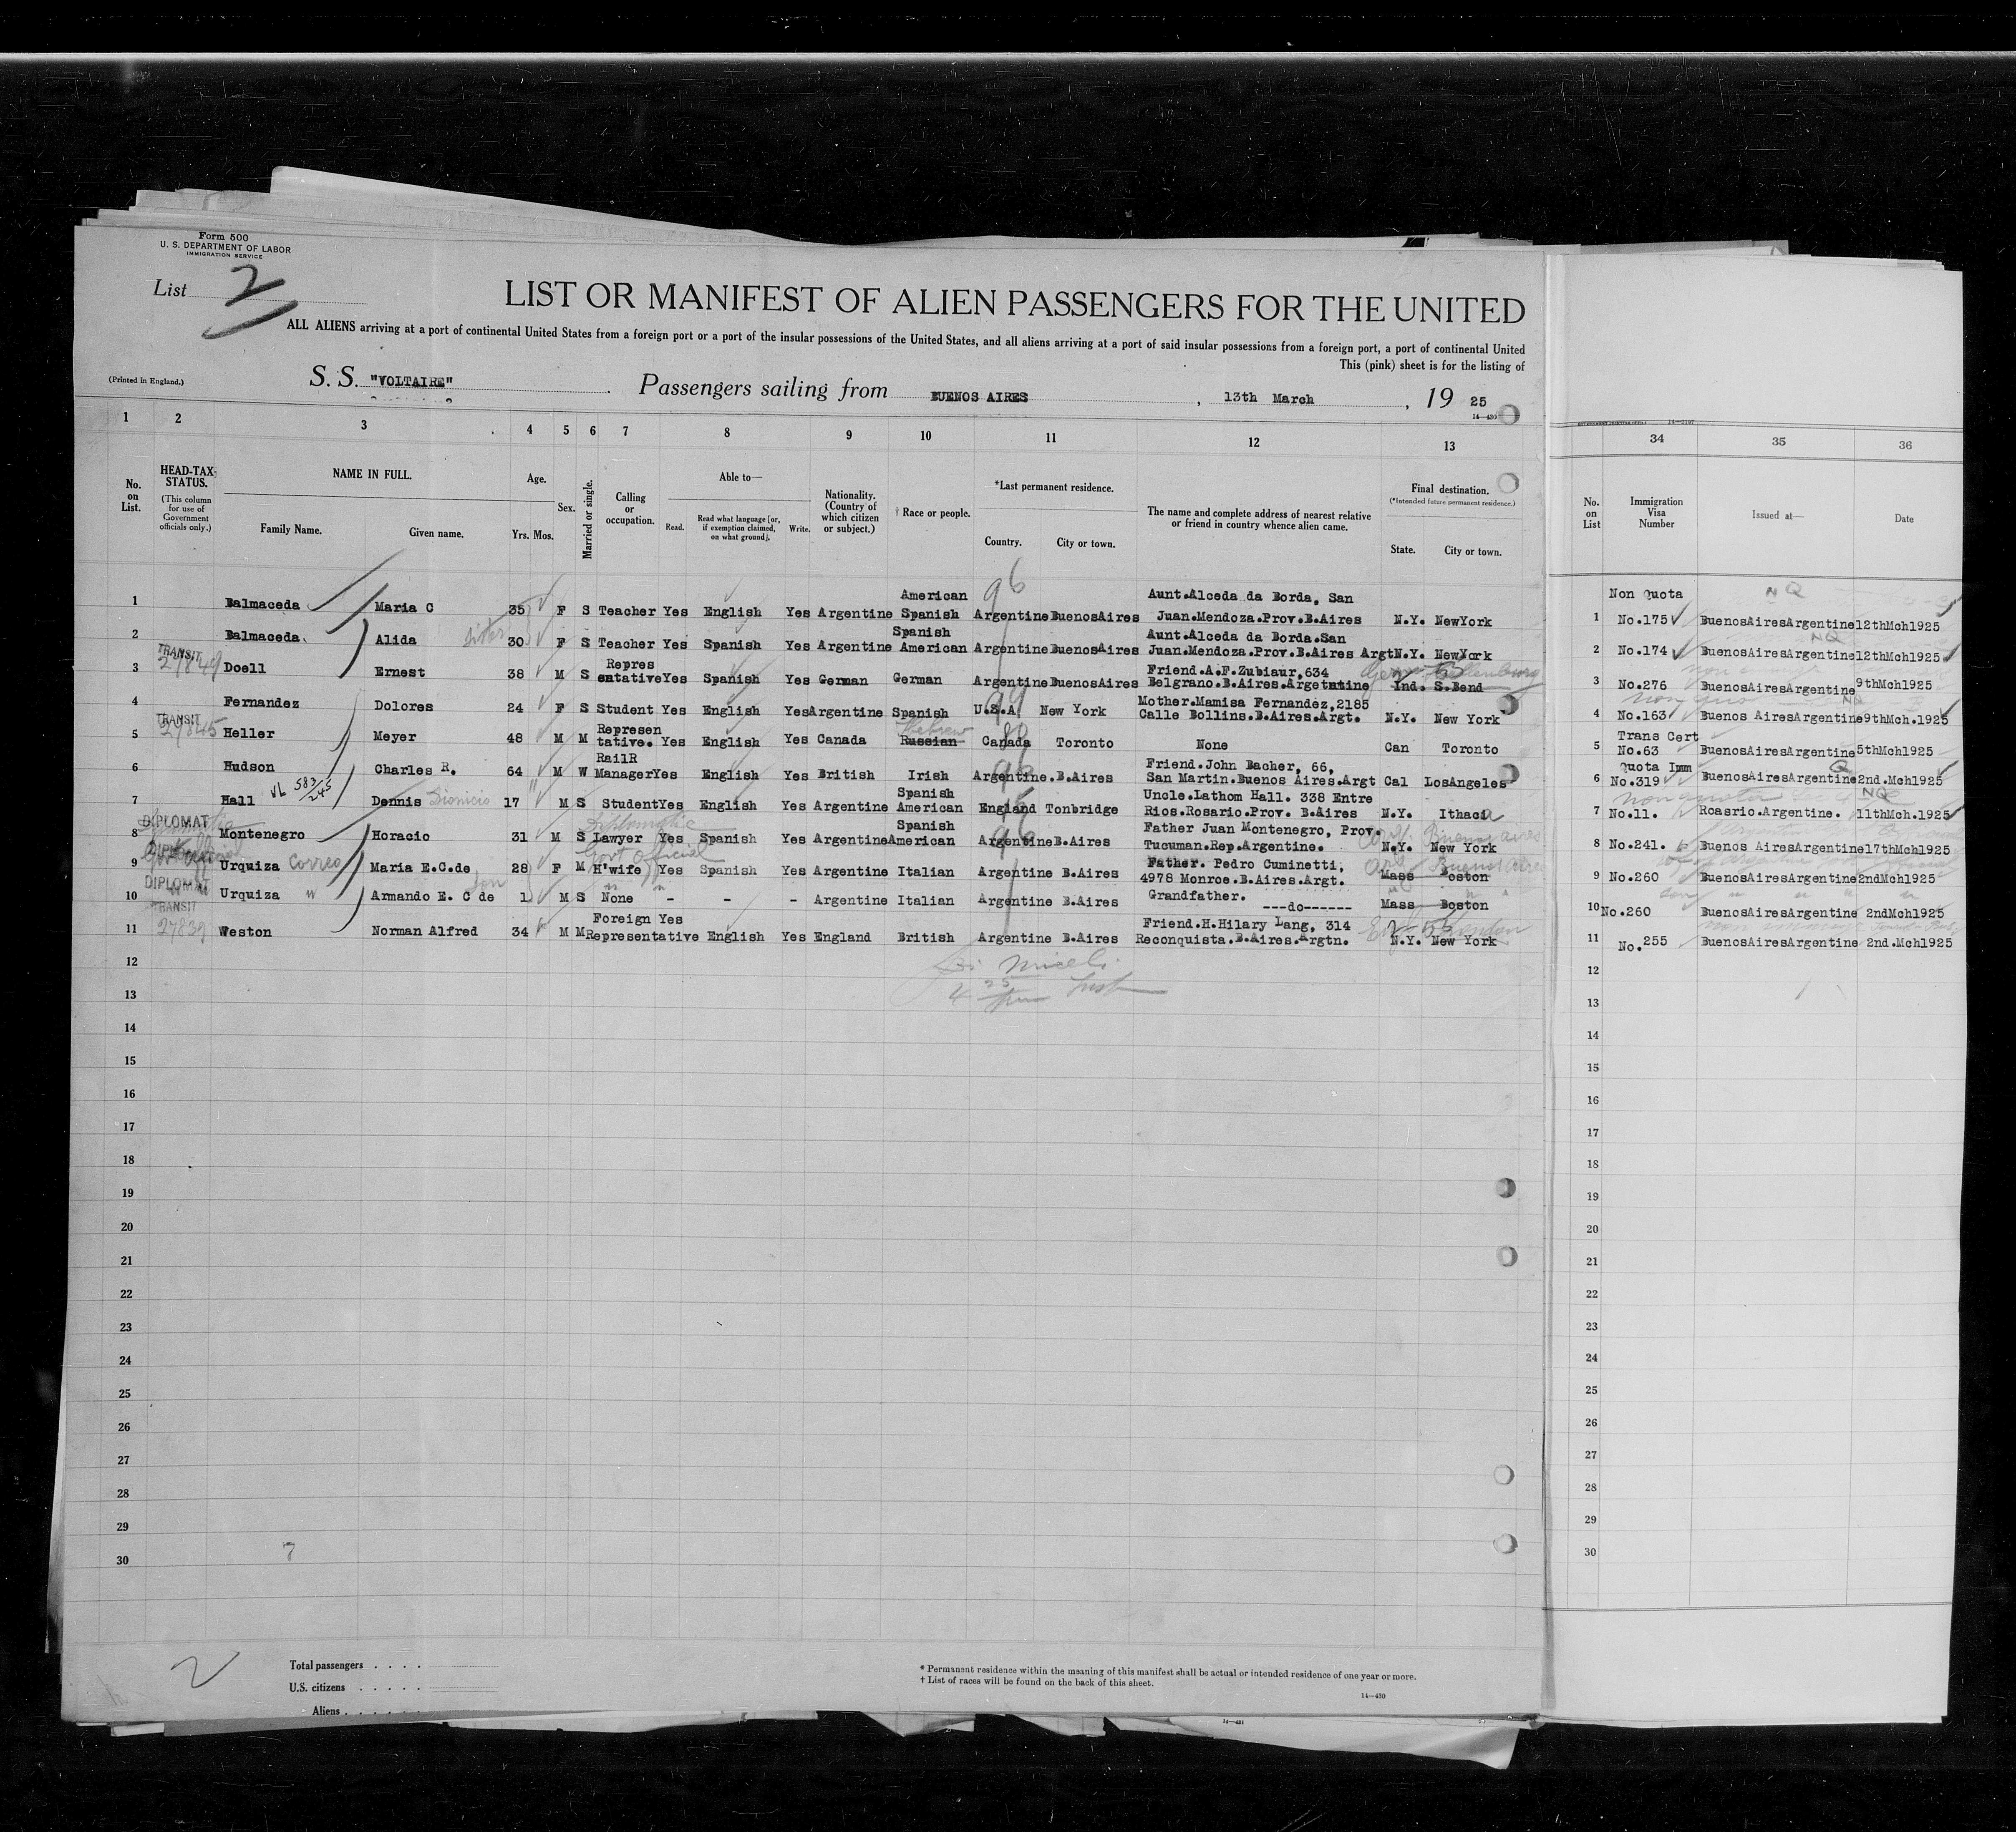 Form 500
U. S. DEPARTMENT OF LABOR
IMMIGRATION SERVICE
List 2
LIST OR MANIFEST OF ALIEN PASSENGERS FOR THE UNITED
ALL ALIENS arriving at a port of continental United States from a foreign port or a port of the insular possessions of the United States, and all aliens arriving at a port of said insular possessions from a foreign port, a port of continental United
This (pink) sheet is for the listing of
(Printed in England.)
S. S. "VOLTAIRE" Passengers sailing from BUENOS AIRES, 13th March, 19 25
14—430
1 2 3 4 5 6 7 8 9 10 11 12 13 34 35 36
No. on List.
HEAD-TAX STATUS.
(This column for use of Government officials only.)
NAME IN FULL.
Family Name. Given name.
Age.
Yrs. Mos.
Sex.
Married or single.
Calling or occupation.
Able to—
Read. Read what language [or, if exemption claimed, on what ground]. Write.
Nationality. (Country of which citizen or subject.)
† Race or people.
*Last permanent residence.
Country. City or town.
The name and complete address of nearest relative or friend in country whence alien came.
Final destination.
(*Intended future permanent residence.)
State. City or town.
No. on List
Immigration Visa Number
Issued at—
Date
American 96 Aunt.Alceda da Borda, San Non Quota NQ
1 Balmaceda Maria C 35 F S Teacher Yes English Yes Argentine Spanish Argentine BuenosAires Juan.Mendoza.Prov.B.Aires N.Y. NewYork 1 No.175 BuenosAiresArgentine 12thMch1925
Spanish Aunt.Alceda da Borda.San NQ
2 Balmaceda. Alida Sister 30 F S Teacher Yes Spanish Yes Argentine American Argentine BuenosAires Juan.Mendoza.Prov.B.Aires Argt N.Y. NewYork 2 No.174 BuenosAiresArgentine 12thMch1925
TRANSIT Repres Friend.A.F.Zubiaur,634
3 27849 Doell Ernest 38 M S entative Yes Spanish Yes German German Argentine BuenosAires Belgrano.B.Aires.Argetntine Ind. S.Bend 3 No.276 BuenosAiresArgentine 9thMch1925
Mother.Mamisa Fernandez,2185 NQ
4 Fernandez Dolores 24 F S Student Yes English Yes Argentine Spanish U.S.A New York Calle Bollins.B.Aires.Argt. N.Y. New York 4 No.163 Buenos AiresArgentine 9thMch.1925
TRANSIT Represen Hebrew Trans Cert
5 27845 Heller Meyer 48 M M tative. Yes English Yes Canada Russian Canada Toronto None Can Toronto 5 No.63 BuenosAiresArgentine 5thMch1925
RailR Friend.John Bacher, 66, Quota Imm Q
6 Hudson Charles R. 64 M W Manager Yes English Yes British Irish Argentine.B.Aires San Martin.Buenos Aires.Argt Cal LosAngeles 6 No.319 BuenosAiresArgentine 2nd.Mch1925
VL 583/245 Spanish Uncle.Lathom Hall. 338 Entre non quota NQ
7 Hall Dennis Dionicio 17 M S Student Yes English Yes Argentine American England Tonbridge Rios.Rosario.Prov. B.Aires N.Y. Ithaca 7 No.11. Roasrio.Argentine. 11thMch.1925
DIPLOMAT Diplomatic Spanish 96 Father Juan Montenegro, Prov. Buenos Aires
8 Montenegro Horacio 31 M S Lawyer Yes Spanish Yes Argentine American Argentine B.Aires Tucuman.Rep.Argentine. N.Y. New York 8 No.241. Buenos AiresArgentine 17thMch1925
DIPLOMAT Govt Official Father. Pedro Cuminetti, Buenos Aires
9 Urquiza Correo Maria E.C.de 28 F M H'wife Yes Spanish Yes Argentine Italian Argentine B.Aires 4978 Monroe.B.Aires.Argt. Mass Boston 9 No.260 BuenosAiresArgentine 2ndMch1925
DIPLOMAT Son Grandfather.
10 Urquiza " Armando E. C de 1 M S None - - - Argentine Italian Argentine B.Aires ---do------ Mass Boston 10 No.260 BuenosAiresArgentine 2ndMch1925
TRANSIT Foreign Yes Friend.H.Hilary Lang, 314
11 27839 Weston Norman Alfred 34 M M Representative English Yes England British Argentine B.Aires Reconquista.B.Aires.Argtn. N.Y. New York 11 No.255 BuenosAiresArgentine 2nd.Mch1925
12 12
13 13
14 14
15 15
16 16
17 17
18 18
19 19
20 20
21 21
22 22
23 23
24 24
25 25
26 26
27 27
28 28
29 29
30 7 30
2
Total passengers . . . .
U.S. citizens . . . . .
Aliens . . . . .
* Permanent residence within the meaning of this manifest shall be actual or intended residence of one year or more.
† List of races will be found on the back of this sheet.
14—430